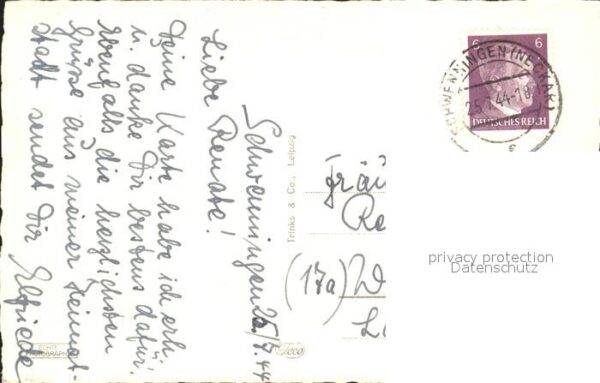 Schwenningen 25/7.44
Liebe
Renate!
Deine Karte habe ich erh.
u. danke Dir bestens dafür.
Ebenfalls die herzlichsten
Grüsse aus meiner Heimat-
stadt sendet Dir Elfriede
Trinks & Co., Leipzig
Fräu
Re
(17a)
ECHTE
PHOTOGRAPHIE
Trico
SCHWENNINGEN (NECKAR)
25.7.44-18
6 6
DEUTSCHES REICH
privacy protection
Datenschutz